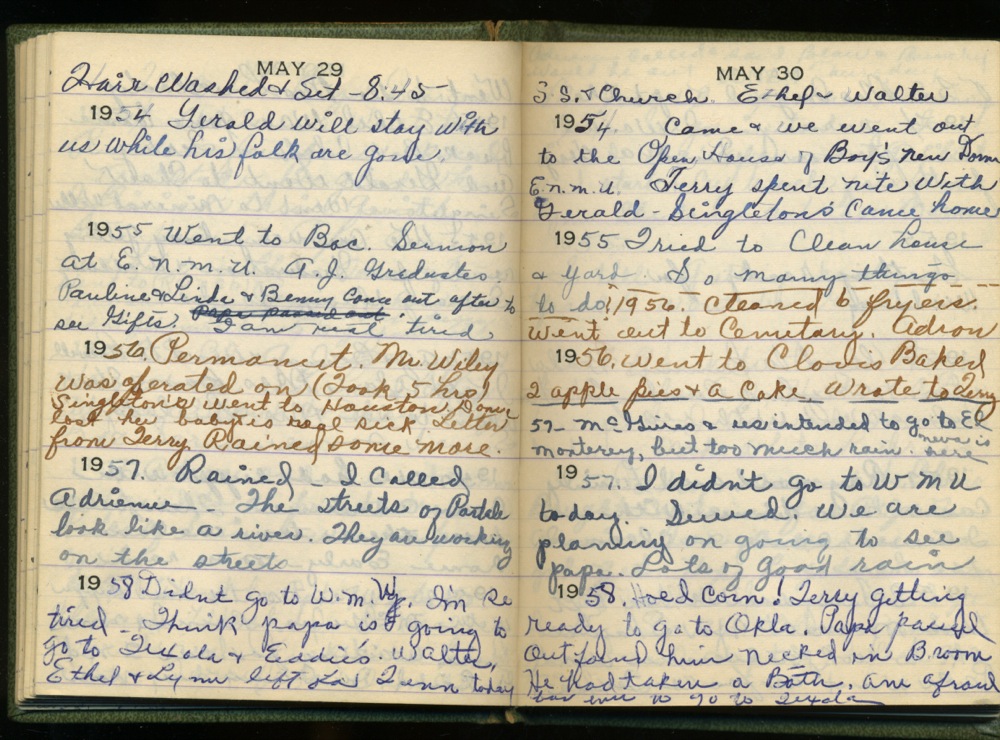 MAY 29
Hair Washed & Set - 8:45
1954 Gerald will stay with
us while his folk are gone.
1955 Went to Bac. Sermon
at E.N.M.U. A.J. Graduates
Pauline & Linda & Benny came out after to
see Gifts. Papa passed out. I am real tired
1956. Permanent. Mr. Wiley
was oferated on (Took 5 hrs)
Singletons went to Houston Donna
lost her baby & is real sick Letter
from Terry Rained some more.
1957. Rained - I called
Adrienne - The streets of Portales
look like a river. They are working
on the streets
1958 Didnt go to W.M.U. I'm so
tired - Think papa is going to
go to Texola & Eddie's. Walter,
Ethel & Lynn left for Tenn today
MAY 30
S.S. & Church. Ethel & Walter
1954. Came & we went out
to the Open House of Boy's new Dorm
E.N.M.U. Terry spent nite with
Gerald - Singletons' Came home
1955 Tried to Clean house
& yard. So many things
to do! 1956. Cleaned 6 fryers.
Went out to Cemetary. Adron
1956. went to Clovis Baked
2 apple pies & a Cake. Wrote to Terry
57- McGuires & us intended to go to El
monterey, but too much rain. neva is here
1957. I didn't go to W M U
today. Sewed. We are
planning on going to see
papa. Lots of Good rain
1958. Hoed Corn! Terry getting
ready to go to Okla. Papa passed
out found him necked in B room
He had taken a Bath, am afraid
for him to go to Texola